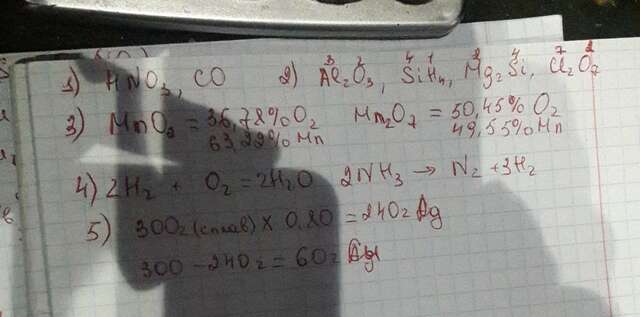 1) HNO3, CO 2) Al2O3, SiH4, Mg2Si, Cl2O7
3) MnO2 = 36,78% O2 Mn2O7 = 50,45% O2
63,22% Mn 49,55% Mn
4) 2H2 + O2 = 2H2O 2NH3 → N2 + 3H2
5) 300г (сплав) × 0,80 = 240г Ag
300 - 240г = 60г